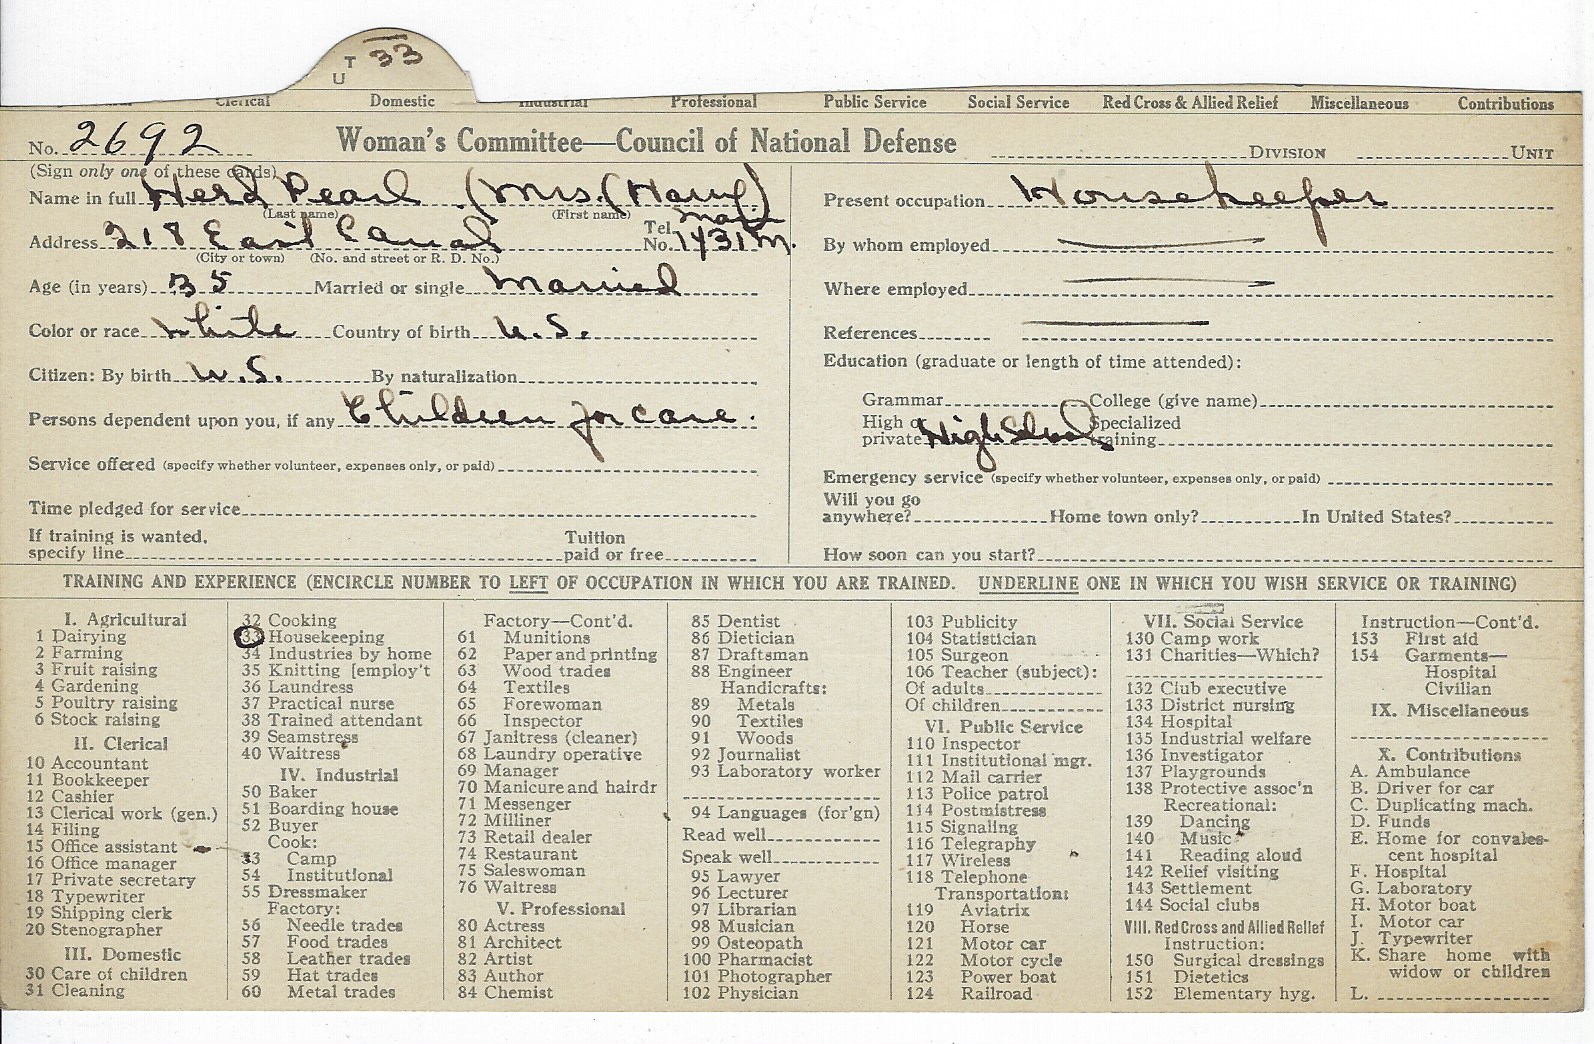 T 33
U
Clerical Domestic Industrial Professional Public Service Social Service Red Cross & Allied Relief Miscellaneous Contributions
No. 2692 Woman's Committee—Council of National Defense DIVISION UNIT
(Sign only one of these cards)
Name in full Herd Pearl (Mrs. (Harry)
(Last name) (First name)
Address 218 East Canal Tel. No. Main 1431 M.
(City or town) (No. and street or R. D. No.)
Age (in years) 35 Married or single Married
Color or race White Country of birth U.S.
Citizen: By birth U.S. By naturalization
Persons dependent upon you, if any Children for care.
Service offered (specify whether volunteer, expenses only, or paid)
Time pledged for service
If training is wanted, specify line Tuition paid or free
Present occupation Housekeeper
By whom employed
Where employed
References
Education (graduate or length of time attended):
Grammar College (give name)
High or private High School Specialized training
Emergency service (specify whether volunteer, expenses only, or paid)
Will you go anywhere? Home town only? In United States?
How soon can you start?
TRAINING AND EXPERIENCE (ENCIRCLE NUMBER TO LEFT OF OCCUPATION IN WHICH YOU ARE TRAINED. UNDERLINE ONE IN WHICH YOU WISH SERVICE OR TRAINING)
I. Agricultural
1 Dairying
2 Farming
3 Fruit raising
4 Gardening
5 Poultry raising
6 Stock raising
II. Clerical
10 Accountant
11 Bookkeeper
12 Cashier
13 Clerical work (gen.)
14 Filing
15 Office assistant
16 Office manager
17 Private secretary
18 Typewriter
19 Shipping clerk
20 Stenographer
III. Domestic
30 Care of children
31 Cleaning
32 Cooking
33 Housekeeping
34 Industries by home
35 Knitting [employ't
36 Laundress
37 Practical nurse
38 Trained attendant
39 Seamstress
40 Waitress
IV. Industrial
50 Baker
51 Boarding house
52 Buyer
Cook:
33 Camp
54 Institutional
55 Dressmaker
Factory:
56 Needle trades
57 Food trades
58 Leather trades
59 Hat trades
60 Metal trades
Factory—Cont'd.
61 Munitions
62 Paper and printing
63 Wood trades
64 Textiles
65 Forewoman
66 Inspector
67 Janitress (cleaner)
68 Laundry operative
69 Manager
70 Manicure and hairdr
71 Messenger
72 Milliner
73 Retail dealer
74 Restaurant
75 Saleswoman
76 Waitress
V. Professional
80 Actress
81 Architect
82 Artist
83 Author
84 Chemist
85 Dentist
86 Dietician
87 Draftsman
88 Engineer
Handicrafts:
89 Metals
90 Textiles
91 Woods
92 Journalist
93 Laboratory worker
94 Languages (for'gn)
Read well
Speak well
95 Lawyer
96 Lecturer
97 Librarian
98 Musician
99 Osteopath
100 Pharmacist
101 Photographer
102 Physician
103 Publicity
104 Statistician
105 Surgeon
106 Teacher (subject):
Of adults
Of children
VI. Public Service
110 Inspector
111 Institutional mgr.
112 Mail carrier
113 Police patrol
114 Postmistress
115 Signaling
116 Telegraphy
117 Wireless
118 Telephone
Transportation:
119 Aviatrix
120 Horse
121 Motor car
122 Motor cycle
123 Power boat
124 Railroad
VII. Social Service
130 Camp work
131 Charities—Which?
132 Club executive
133 District nursing
134 Hospital
135 Industrial welfare
136 Investigator
137 Playgrounds
138 Protective assoc'n
Recreational:
139 Dancing
140 Music
141 Reading aloud
142 Relief visiting
143 Settlement
144 Social clubs
VIII. Red Cross and Allied Relief
Instruction:
150 Surgical dressings
151 Dietetics
152 Elementary hyg.
Instruction—Cont'd.
153 First aid
154 Garments—
Hospital
Civilian
IX. Miscellaneous
X. Contributions
A. Ambulance
B. Driver for car
C. Duplicating mach.
D. Funds
E. Home for convales-
cent hospital
F. Hospital
G. Laboratory
H. Motor boat
I. Motor car
J. Typewriter
K. Share home with
widow or children
L.